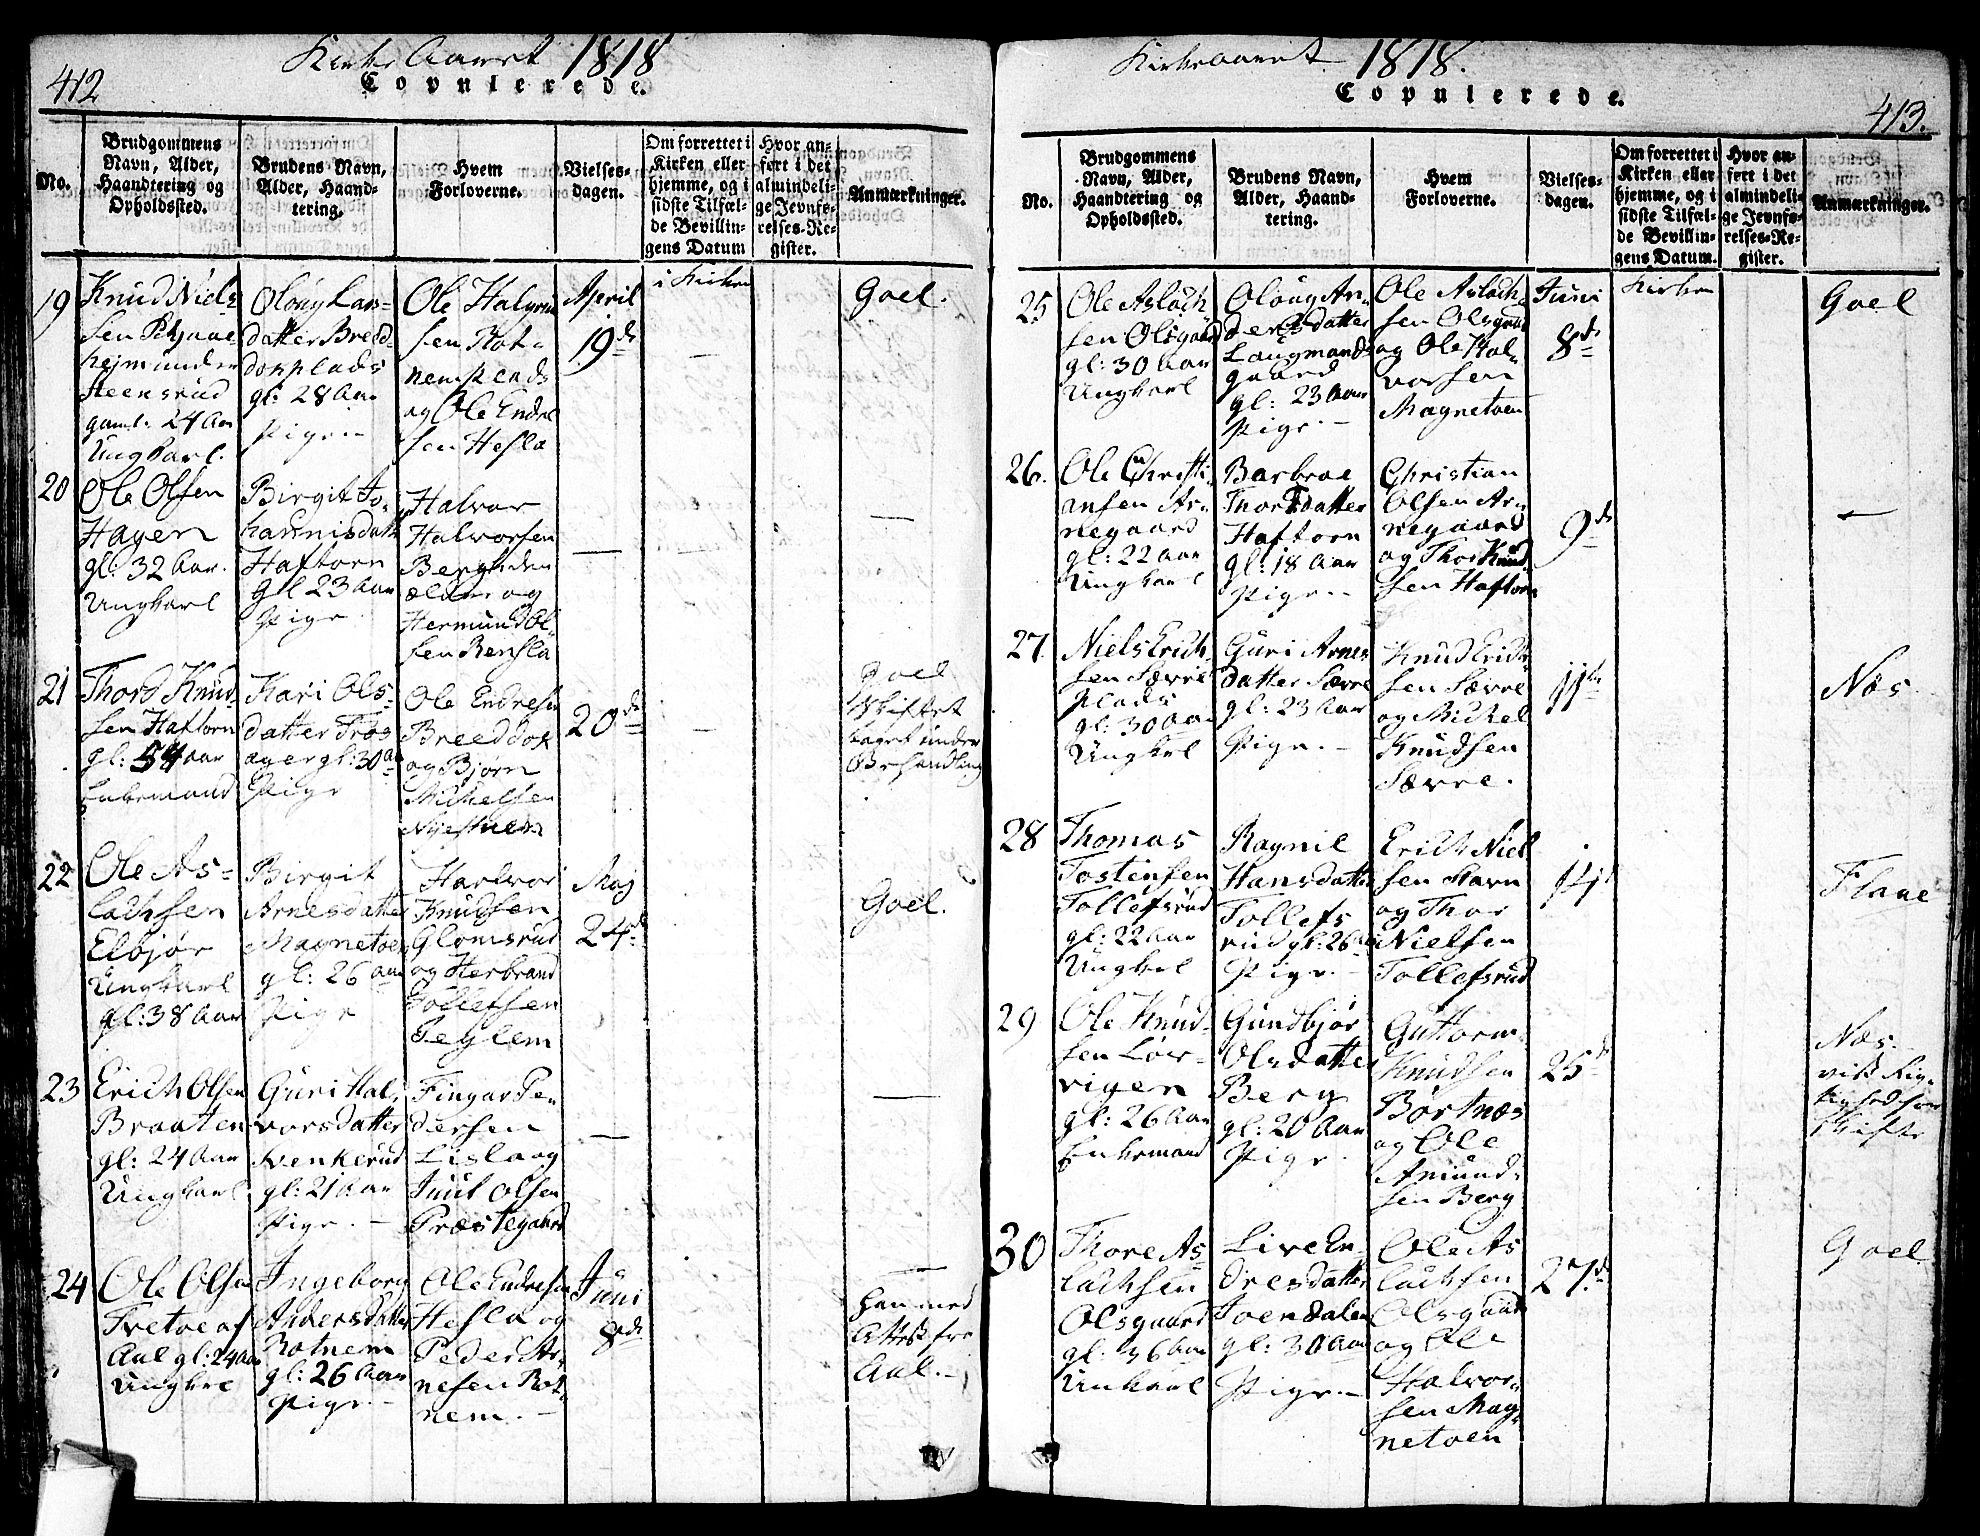 412
Kirke Aaret 1818
Copulerede.
No.
Brudgommens
Navn, Alder,
Haandtering og
Opholdssted.
Brudens Navn,
Alder, Haand-
tering.
Hvem
Forloverne.
Vielses-
dagen.
Om forrettet i
Kirken eller
hjemme, og i
sidste Tilfæl-
de Bevillin-
gens Datum
Hvor an-
ført i det
almindeli-
ge Jevnfø-
relses-Re-
gister.
Anmærkninger.
19
Knud Niels
sen
hejm under
Heensrud
gaml. 24 Aar
Ungkarl.
Oloug Lars
datter Breed-
dokplads
gl: 28 Aar
Pige
Ole Halgrim
sen Rot-
nem
og Ole Endre
sen Hesla
April
19de
i Kirken
Goel.
20
Ole Olsen
Hagen
gl: 32 Aar.
Ungkarl
Birgit Jo-
hannisdatter
Haftorn
gl 23 Aar
Pige
Halvor
Halvorsen
Berg den
ældre og
Hermund Ol-
sen Rensla
21
Thord Knud-
sen Haftorn
gl: 54 aar
Enkemand
Kari Ols-
datter Frøs
ager gl: 30 Aar
Pige
Ole Endresen
Breeddok
og Bjørn
Michelsen
20de
Goel
Skiftet
taget under
Behandling
22
Ole As-
lachsen
Elbjør
Ungkarl
gl: 38 Aar
Birgit
Arnesdatter
Magnetoen
gl: 26 aar
Pige
Hartvor
Knudsen
Glomsrud
og Herbrand
Tollefsen
Teglem
Maj
24de
Goel.
23
Erich Olsen
Braaten
gl: 24 Aar
Ungkarl
Guri Hal-
vorsdatter
Svenkerud
gl: 21 Aar
Pige.
Fingar Pe-
dersen
Lisla og
Juul Olsen
Præstegaard
24
Ole Olsen
Tretoe af
Aal gl: 24 Aar
Ungkrl
Ingeborg
Andersdatter
Rotnem
gl: 26 Aar
Pige.
Ole Endresen
Hesla og
Peder Ar-
nesen Rot-
nem.
Juni
8de
han med
Attest fra
Aal.
Kirkeaaret 1818.
Copulerede.
413.
No.
Brudgommens
Navn, Alder,
Haandtering og
Opholdssted.
Brudens Navn,
Alder, Haand-
tering.
Hvem
Forloverne.
Vielses-
dagen.
Om forrettet i
Kirken eller
hjemme, og i
sidste Tilfæl-
de Bevillin-
gens Datum.
Hvor an-
ført i det
almindeli-
ge Jevnfø-
relses-Re-
gister.
Anmærkninger.
25
Ole Aslach
sen Olsgaard
gl: 30 Aar
Ungkarl
Oloug An-
dersdatter
Laugmands
gaard
gl: 23 Aar
Pige.
Ole Aslach-
sen Olsgaard
og Ole Hal-
vorsen
Magnetoen
Juni
8de
Kirken
Goel
26.
Ole Christi-
ansen Ar-
negaard
gl: 22 Aar
Ungkarl
Barbroe
Thorsdatter
Haftorn
gl: 18 Aar
Pige
Christian
Olsen Ar-
negaard
og Thor Knud-
sen Haftorn
9de
27
Niels Erich-
sen Særre
Plads
gl: 30 Aar
Ungkrl
Guri Arnes
datter Særre
gl: 23 Aar
Pige.
Knud Erich-
sen Særre
og Michel
Knudsen
Særre.
11te
Næs
28
Thomas
Tostensen
Tollefsrud
gl: 22 Aar
Ungkrl
Ragnil
Hansdatter
Tollefs
rud gl: 26 Aar
Pige.
Erich Niel
sen Starn
og Thor
Nielsen
Tollefsrud
14de
Flaae
29
Ole Knud-
sen Løv-
vigen
gl: 26 Aar
Enkemand
Gundbjør
Olsdatter
Berg
gl: 20 Aar
Pige.
Guttorm
Knudsen
Børtnæs
og Ole
Amund-
sen Berg
25de
Næs.
30
Thore As
lachsen
Olsgaard
gl: 36 Aar
Unkarl
Live En-
dresdatter
Joendalen
gl: 30 Aar
Pige.
Ole As
lachsen
Olsgaard
og Ole
Halvor-
sen Mag-
netoen
27de
Goel